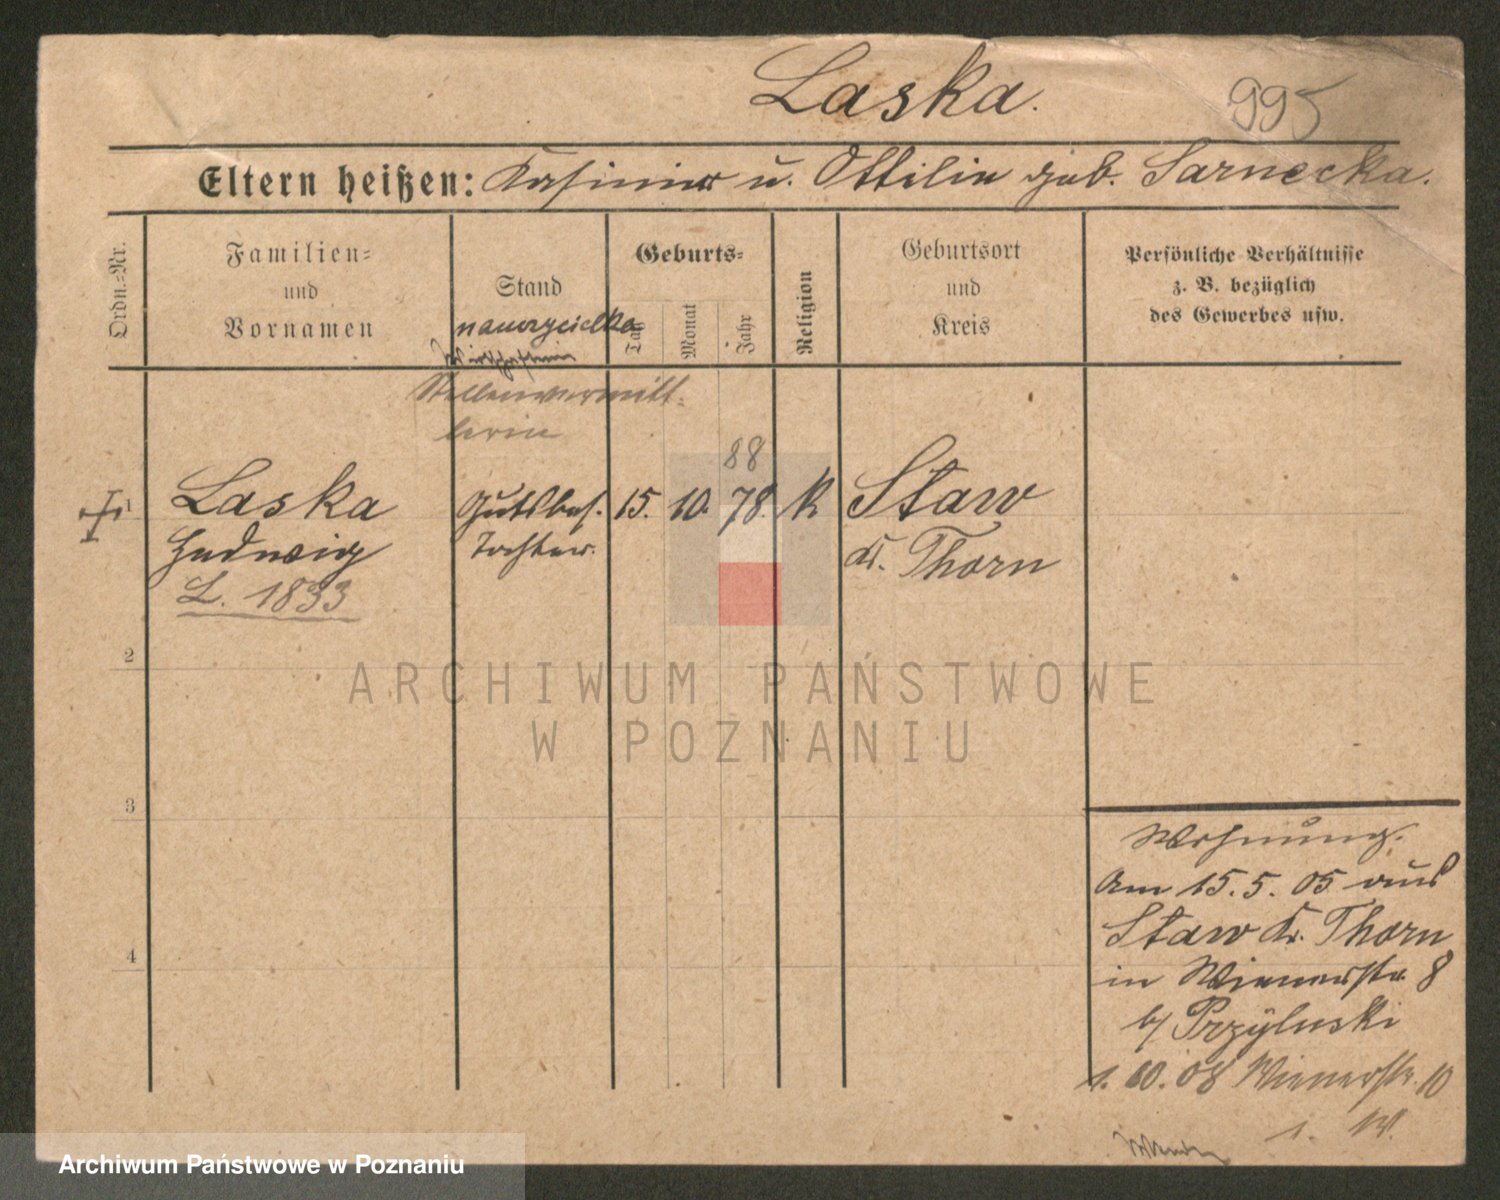 Laska.
995
Eltern heißen: Kasimier u. Ottilie geb. Sarnecka.
Ordn.=Nr.
Familien=
und
Vornamen
Stand
Geburts=
Tag
Monat
Jahr
Religion
Geburtsort
und
Kreis
Persönliche Verhältnisse
z. B. bezüglich
des Gewerbes usw.
nauczycielka
Stellenvermitt-
lerin
88
1
Laska
Hedwig
L. 1833
Gutsbes.
Tochter.
15. 10. 78. k
Staw
Kr. Thorn
2
3
4
Wohnung.
Am 15. 5. 05 aus
Staw Kr. Thorn
in Wienerstr. 8
b/ Przyluski
1. 10. 08 Wienerstr. 10
ARCHIWUM PAŃSTWOWE
W POZNANIU
Archiwum Państwowe w Poznaniu